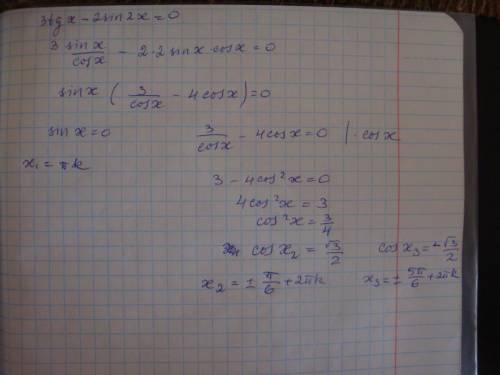 3tg x − 2sin 2x = 0
3 sin x / cos x − 2·2 sin x · cos x = 0
sin x ( 3 / cos x − 4cos x ) = 0
sin x = 0    3 / cos x − 4cos x = 0 | · cos x
x₁ = πk
3 − 4cos²x = 0
4cos²x = 3
cos²x = 3/4
cos x₂ = √3/2    cos x₃ = −√3/2
x₂ = ± π/6 + 2πk    x₃ = ± 5π/6 + 2πk